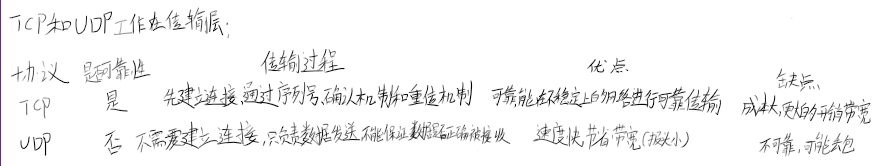 TCP和UDP工作在传输层;
协议 是否可靠性 传输过程 优点 缺点
TCP 是 先建立连接,通过序列号、确认机制和重传机制 可靠能在不稳定上的网络进行可靠传输 成本大,更大的开销带宽
UDP 否 不需要建立连接,只负责数据发送,不能保证数据是否正确被接收 速度快,节省带宽(损失小) 不可靠,可能丢包